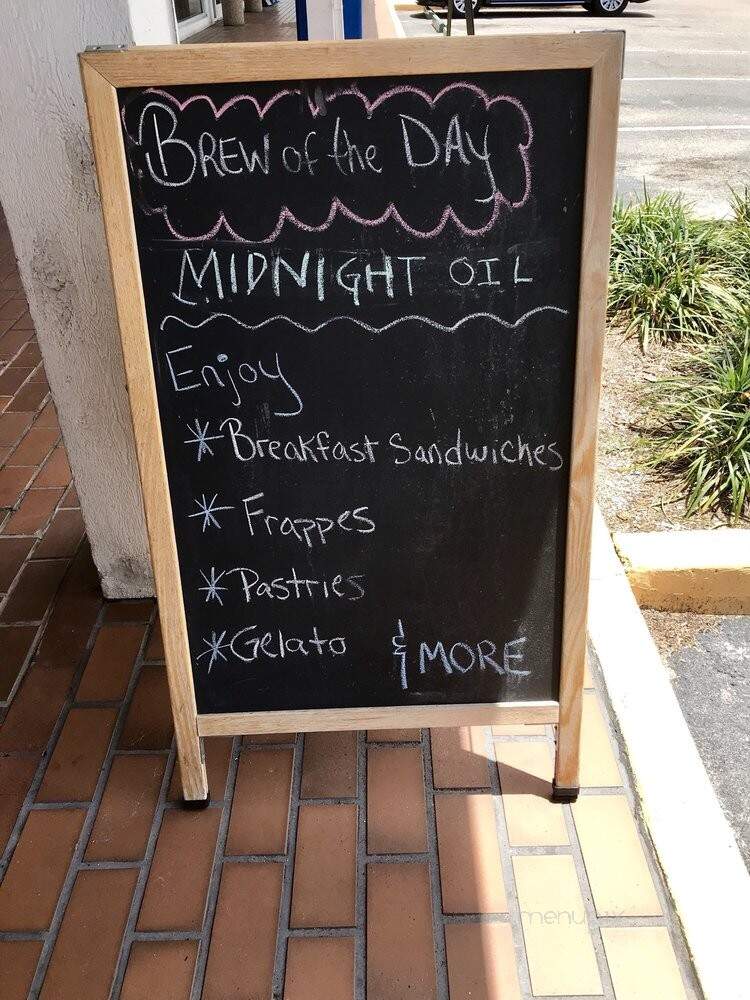 BREW of the DAY
MIDNIGHT OIL
Enjoy
* Breakfast Sandwiches
* Frappes
* Pastries
* Gelato & MORE